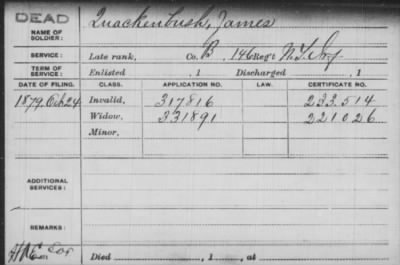 DEAD
NAME OF SOLDIER: Quackenbush, James
SERVICE: Late rank, Co. B, 146 Reg't N.Y. Inf
TERM OF SERVICE: Enlisted , 1 Discharged , 1
DATE OF FILING. CLASS. APPLICATION NO. LAW. CERTIFICATE NO.
1879, Oct 24 Invalid, 317816 233.514
Widow, 331891 221026
Minor,
ADDITIONAL SERVICES:
REMARKS:
Died , 1 , at